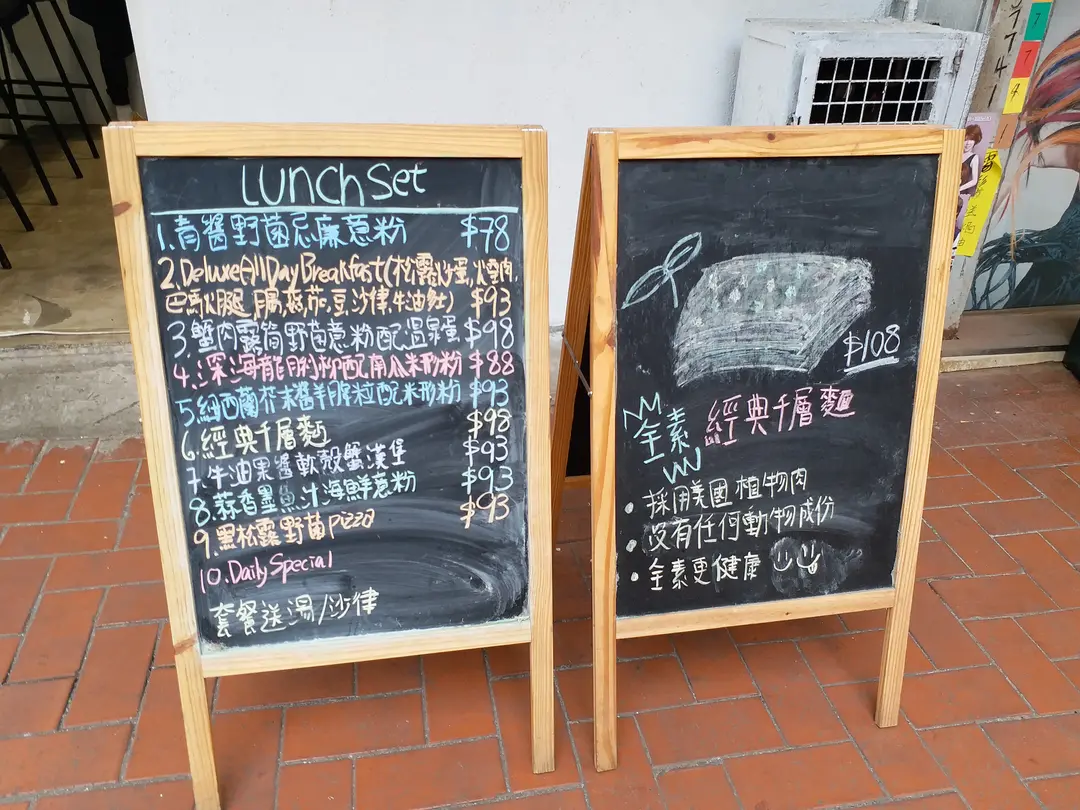 Lunch Set
1.青醬野菌忌廉意粉 $78
2.Deluxe All Day Breakfast(松露炒蛋,煙肉,
巴馬火腿,腸,菇,茄,豆,沙律,牛油多士) $93
3.蟹肉露筒野菌意粉配溫泉蛋 $98
4.深海龍脷柳配南瓜米形粉 $88
5.紐西蘭芥末醬羊脾粒配米形粉 $93
6.經典千層麵 $98
7.牛油果醬軟殼蟹漢堡 $93
8.蒜香墨魚汁海鮮意粉 $93
9.黑松露野菌pizza $93
10.Daily Special
套餐送湯/沙律
$108
全素
經典千層麵
• 採用美國植物肉
• 沒有任何動物成份
• 全素更健康